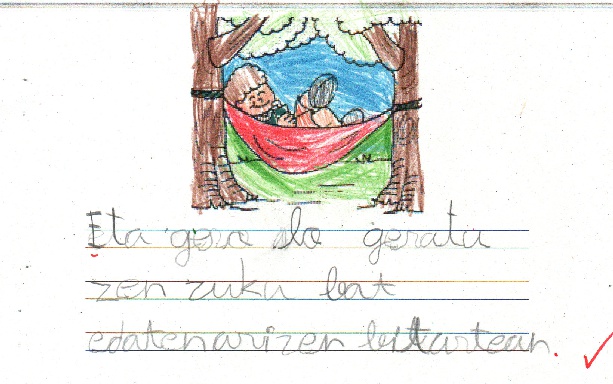 Eta gero lo geratu
zen zuku bat
edatenarizen bitartean.